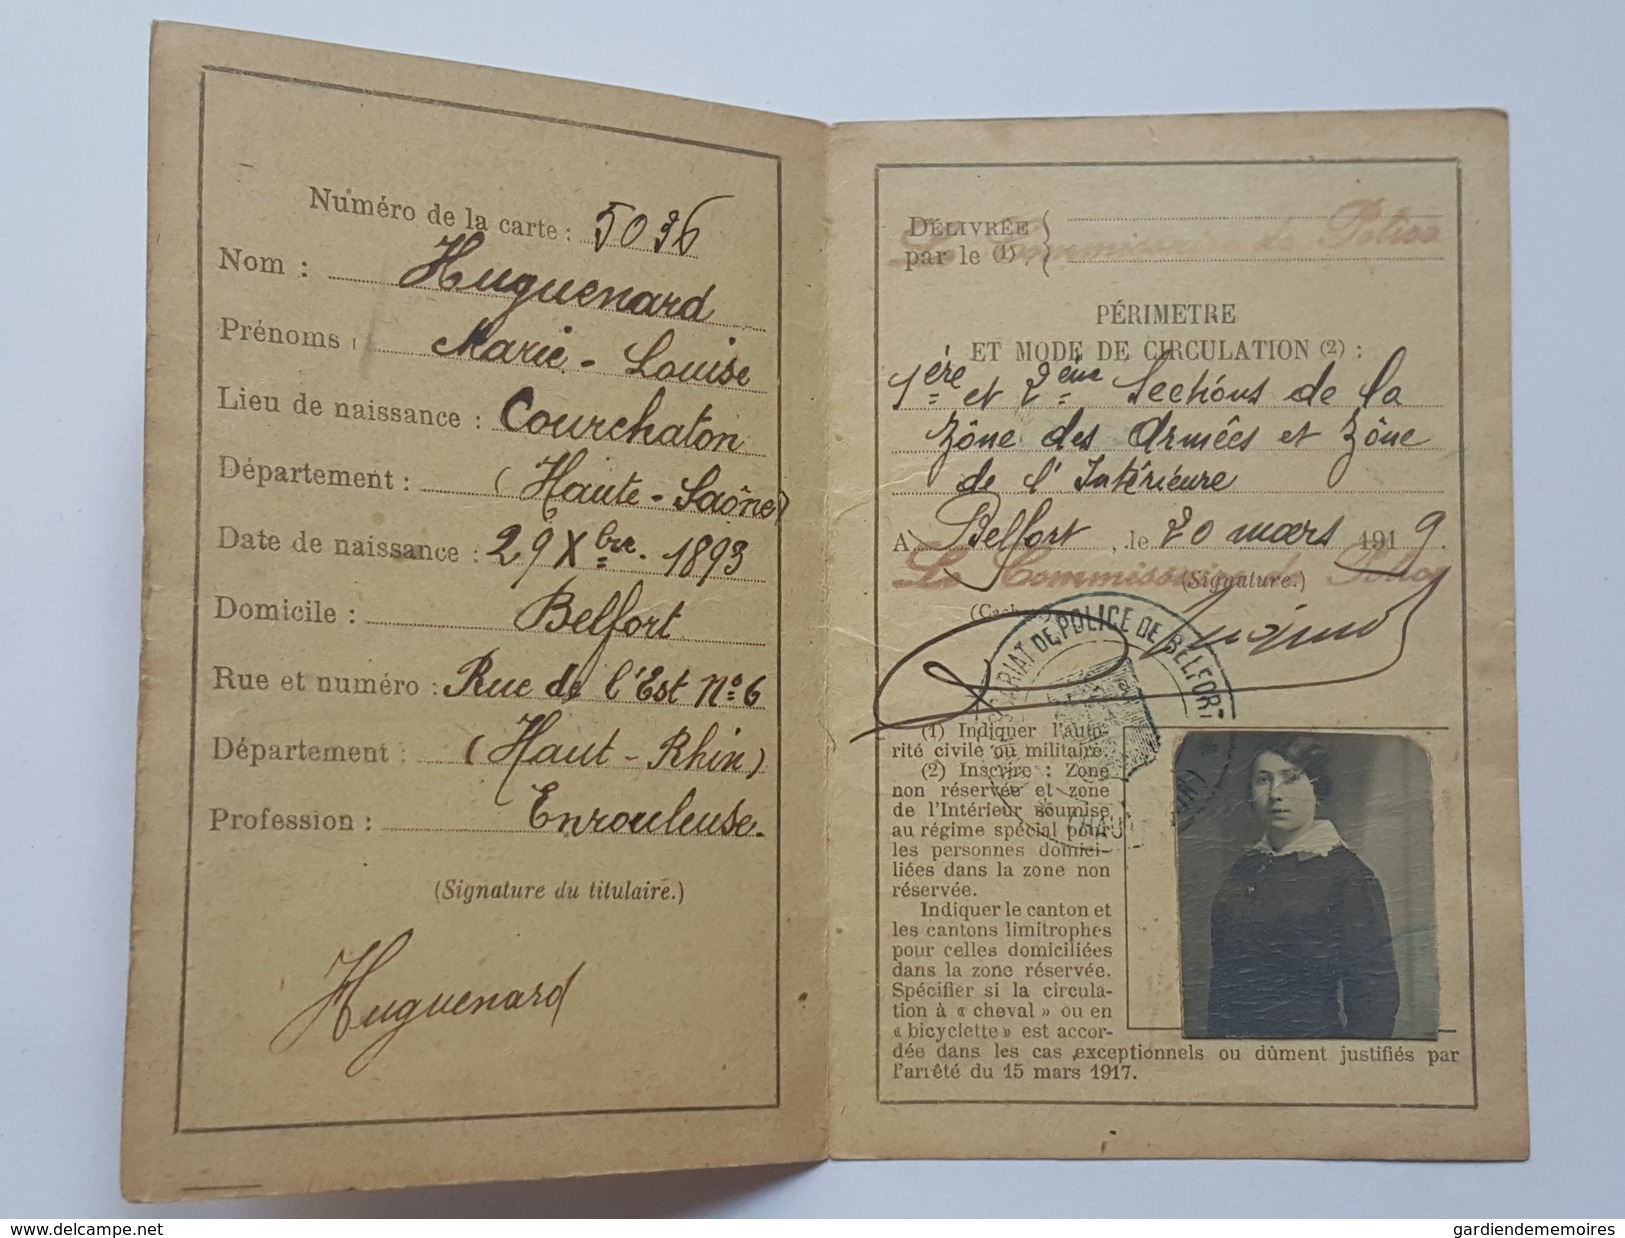 Numéro de la carte : 5036
Nom : Huguenard
Prénoms : Marie-Louise
Lieu de naissance : Courchaton
Département : (Haute-Saône)
Date de naissance : 29 Xbre. 1893
Domicile : Belfort
Rue et numéro : Rue de l'Est No 6
Département : (Haut-Rhin)
Profession : Enrouleuse.
(Signature du titulaire.)
Huguenard
DÉLIVRÉE
par le (1)
Le Commissaire de Police
PÉRIMETRE
ET MODE DE CIRCULATION (2) :
1ère et 2ème Sections de la
Zône des Armées et Zône
de l'Intérieure
A Belfort, le 20 mars 1919.
Le Commissaire de Police
(Signature.)
COMMISSARIAT DE POLICE DE BELFORT
(1) Indiquer l'auto-
rité civile ou militaire.
(2) Inscrire : Zone
non réservée et zone
de l'Intérieur soumise
au régime spécial pour
les personnes domici-
liées dans la zone non
réservée.
Indiquer le canton et
les cantons limitrophes
pour celles domiciliées
dans la zone réservée.
Spécifier si la circula-
tion à « cheval » ou en
« bicyclette » est accor-
dée dans les cas exceptionnels ou dûment justifiés par
l'arrêté du 15 mars 1917.
www.delcampe.net
gardiendememoires